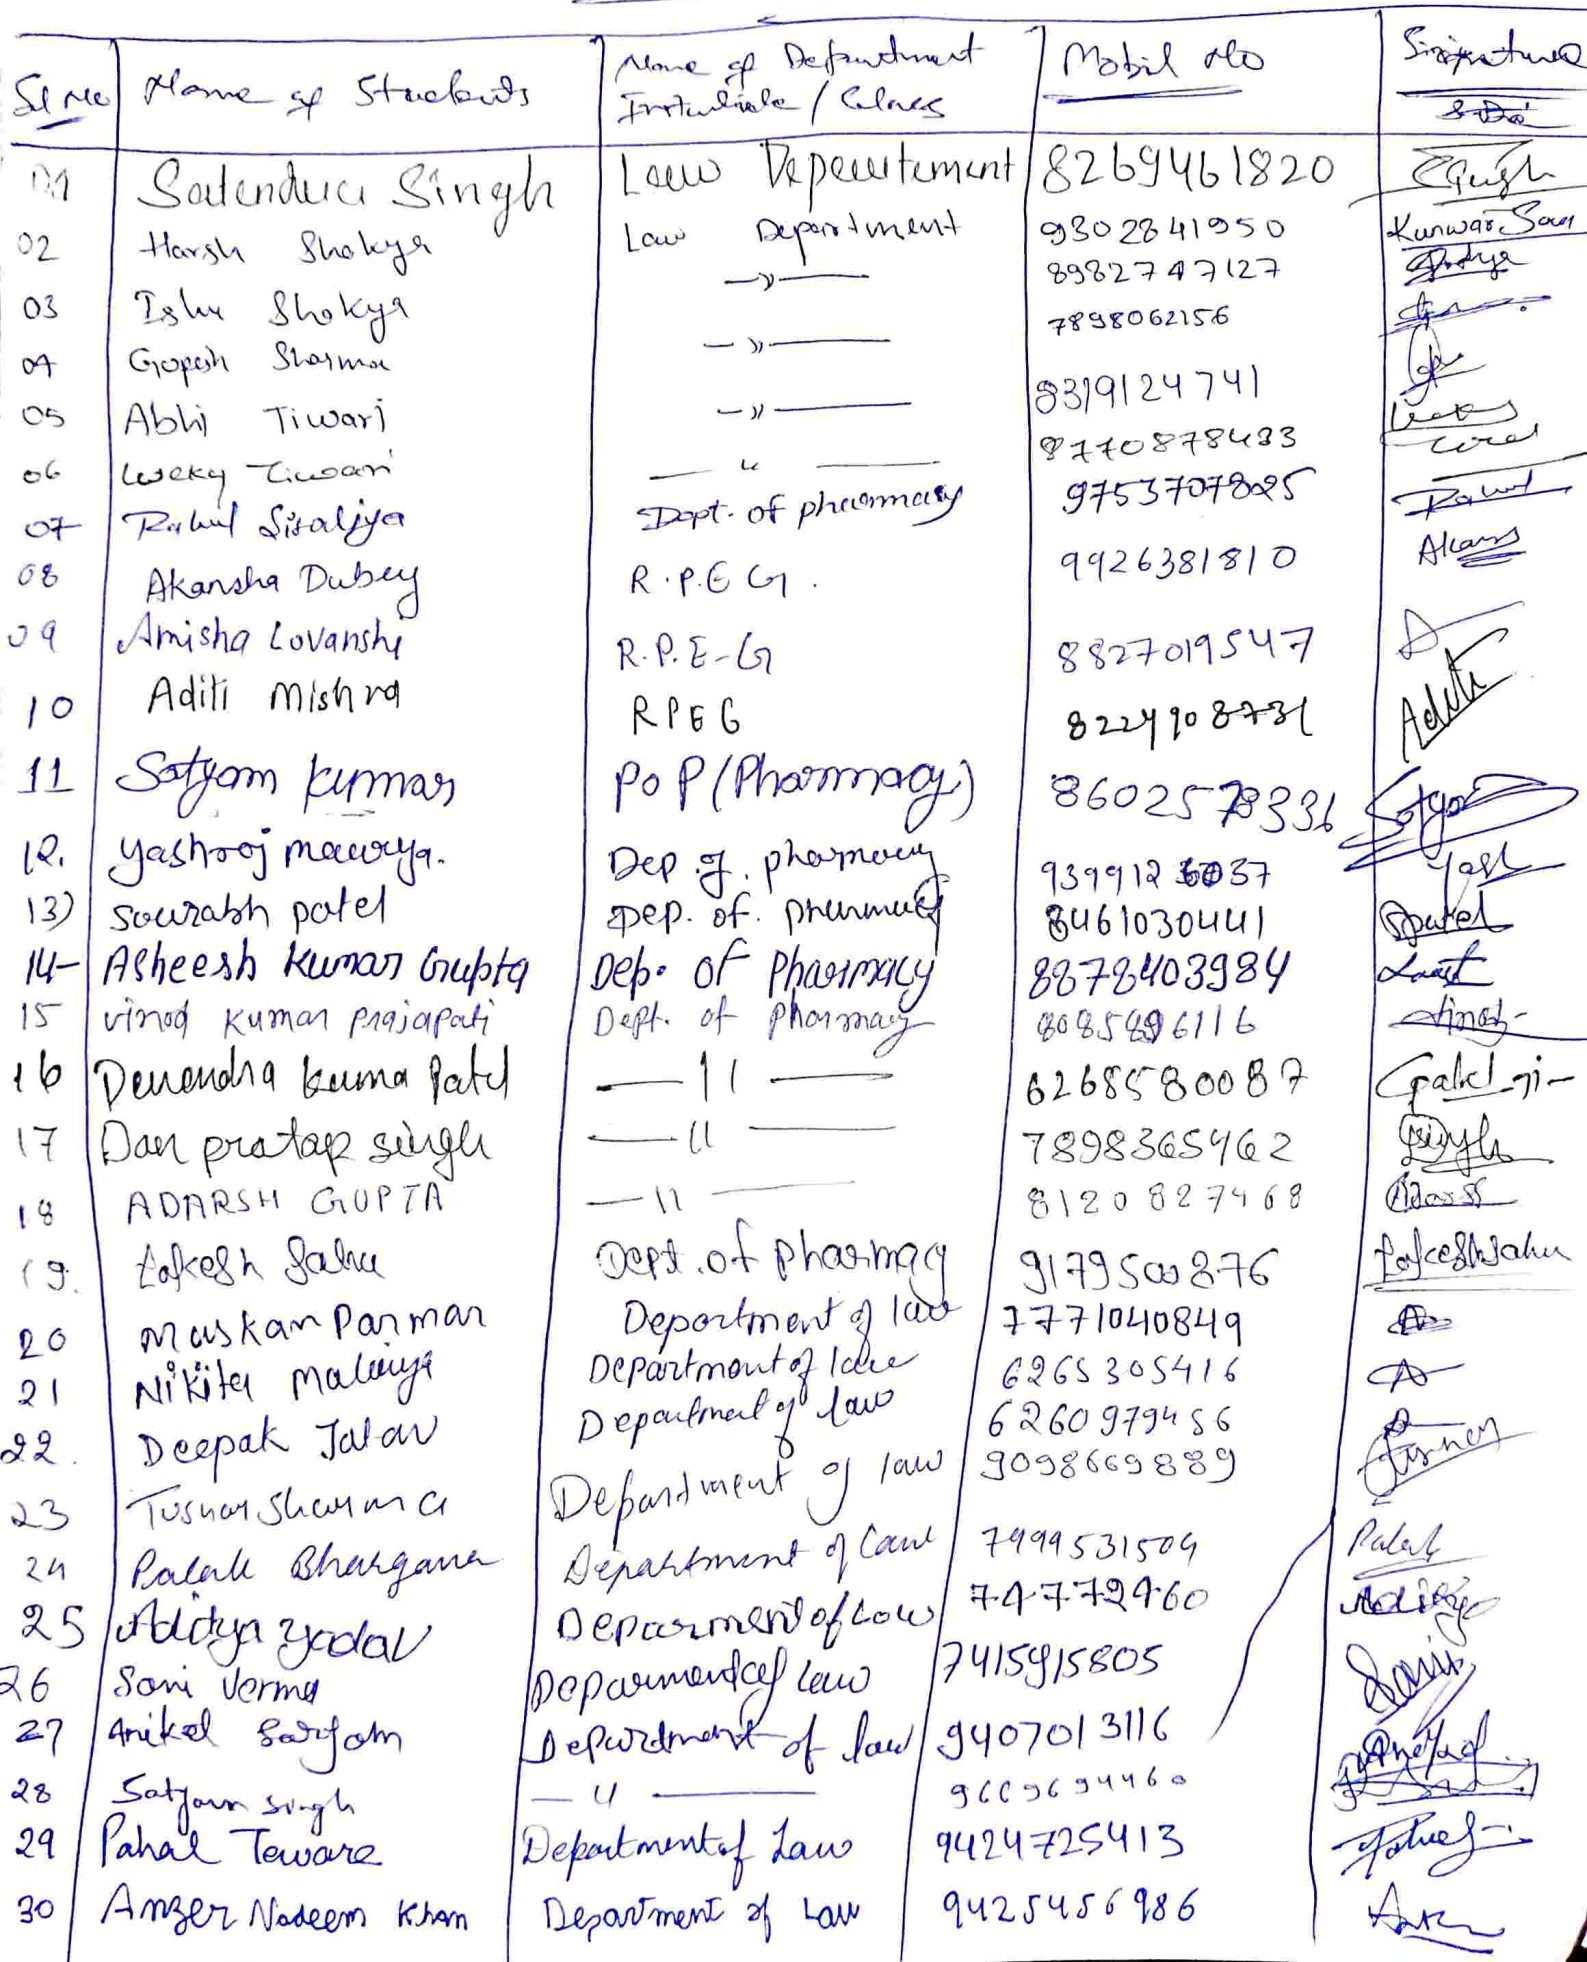 Sl No Name of Students Name of Department Mobil No Signature
Institute / College
01 Satendra Singh Law Depeurtement 8269461820 Singh
02 Harsh Shakya Law Department 9302841950 Kunwar
03 Ishu Shakya —"— 8982747127
04 Gopesh Sharma —"— 7898062156
05 Abhi Tiwari —"— 8319124741
06 Lucky Tiwari —"— 8770878433
07 Rahul Sisoliya Dept. of pharmacy 9753707825 Rahul
08 Akansha Dubey R.P.E G. 9926381810 Akans
09 Amisha Lovanshi R.P.E-G 8827019547
10 Aditi Mishra RPEG 8224908731 Aditi
11 Satyam Kumar PoP (Pharmacy) Satya
12. Yashraj maurya. Dep. of. pharmacy Yash
13) Sourabh patel Dep. of. pharmacy 8461030441 Spatel
14- Asheesh Kumar Gupta Dep. of Pharmacy 8878403984
15 vinod Kumar Prajapati Dept. of Pharmacy Vinod
16 Devendra kuma Patel —11— 6268580087 Patel ji-
17 Dan pratap singh —11— 7898365462 Singh
18 ADARSH GUPTA —11— 8120827468 Adarsh
19. Lokesh Sahu Dept. of pharmacy 9179500876 Lokesh Sahu
20 Muskan Parmar Department of law 7771040849
21 Nikita Malaiya Department of law 6265305416
22. Deepak Jatav Department of law 6260979456
23 Tushar Sharma Department of law 9098669889
24 Palak Bhargava Department of Law 7999531504 Palak
25 Aditya Yadav Deparment of Low 747772960 Aditya
26 Soni Verma Deparment of law 7415915805 Soni
27 Aniket Saryam Department of law 9407013116
28 Satyam Singh —11— 9669694460
29 Pahal Teware Department of Law 9424725413
30 Anzer Nadeem Khan Department of Law 9425456986